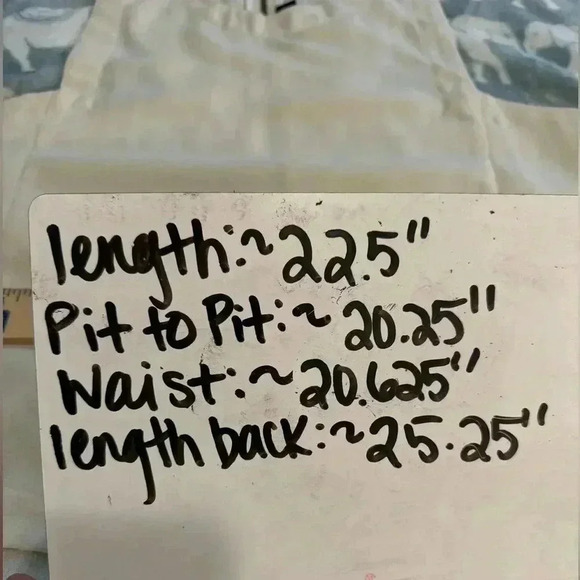 length:~22.5"
Pit to Pit:~20.25"
Waist:~20.625"
length back:~25.25"